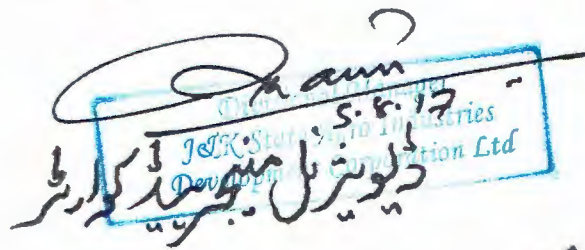 5.8.17
Divisional Manager
J&K State Agro Industries
Development Corporation Ltd
ڈویژنل منیجر ہیڈ کوارٹر